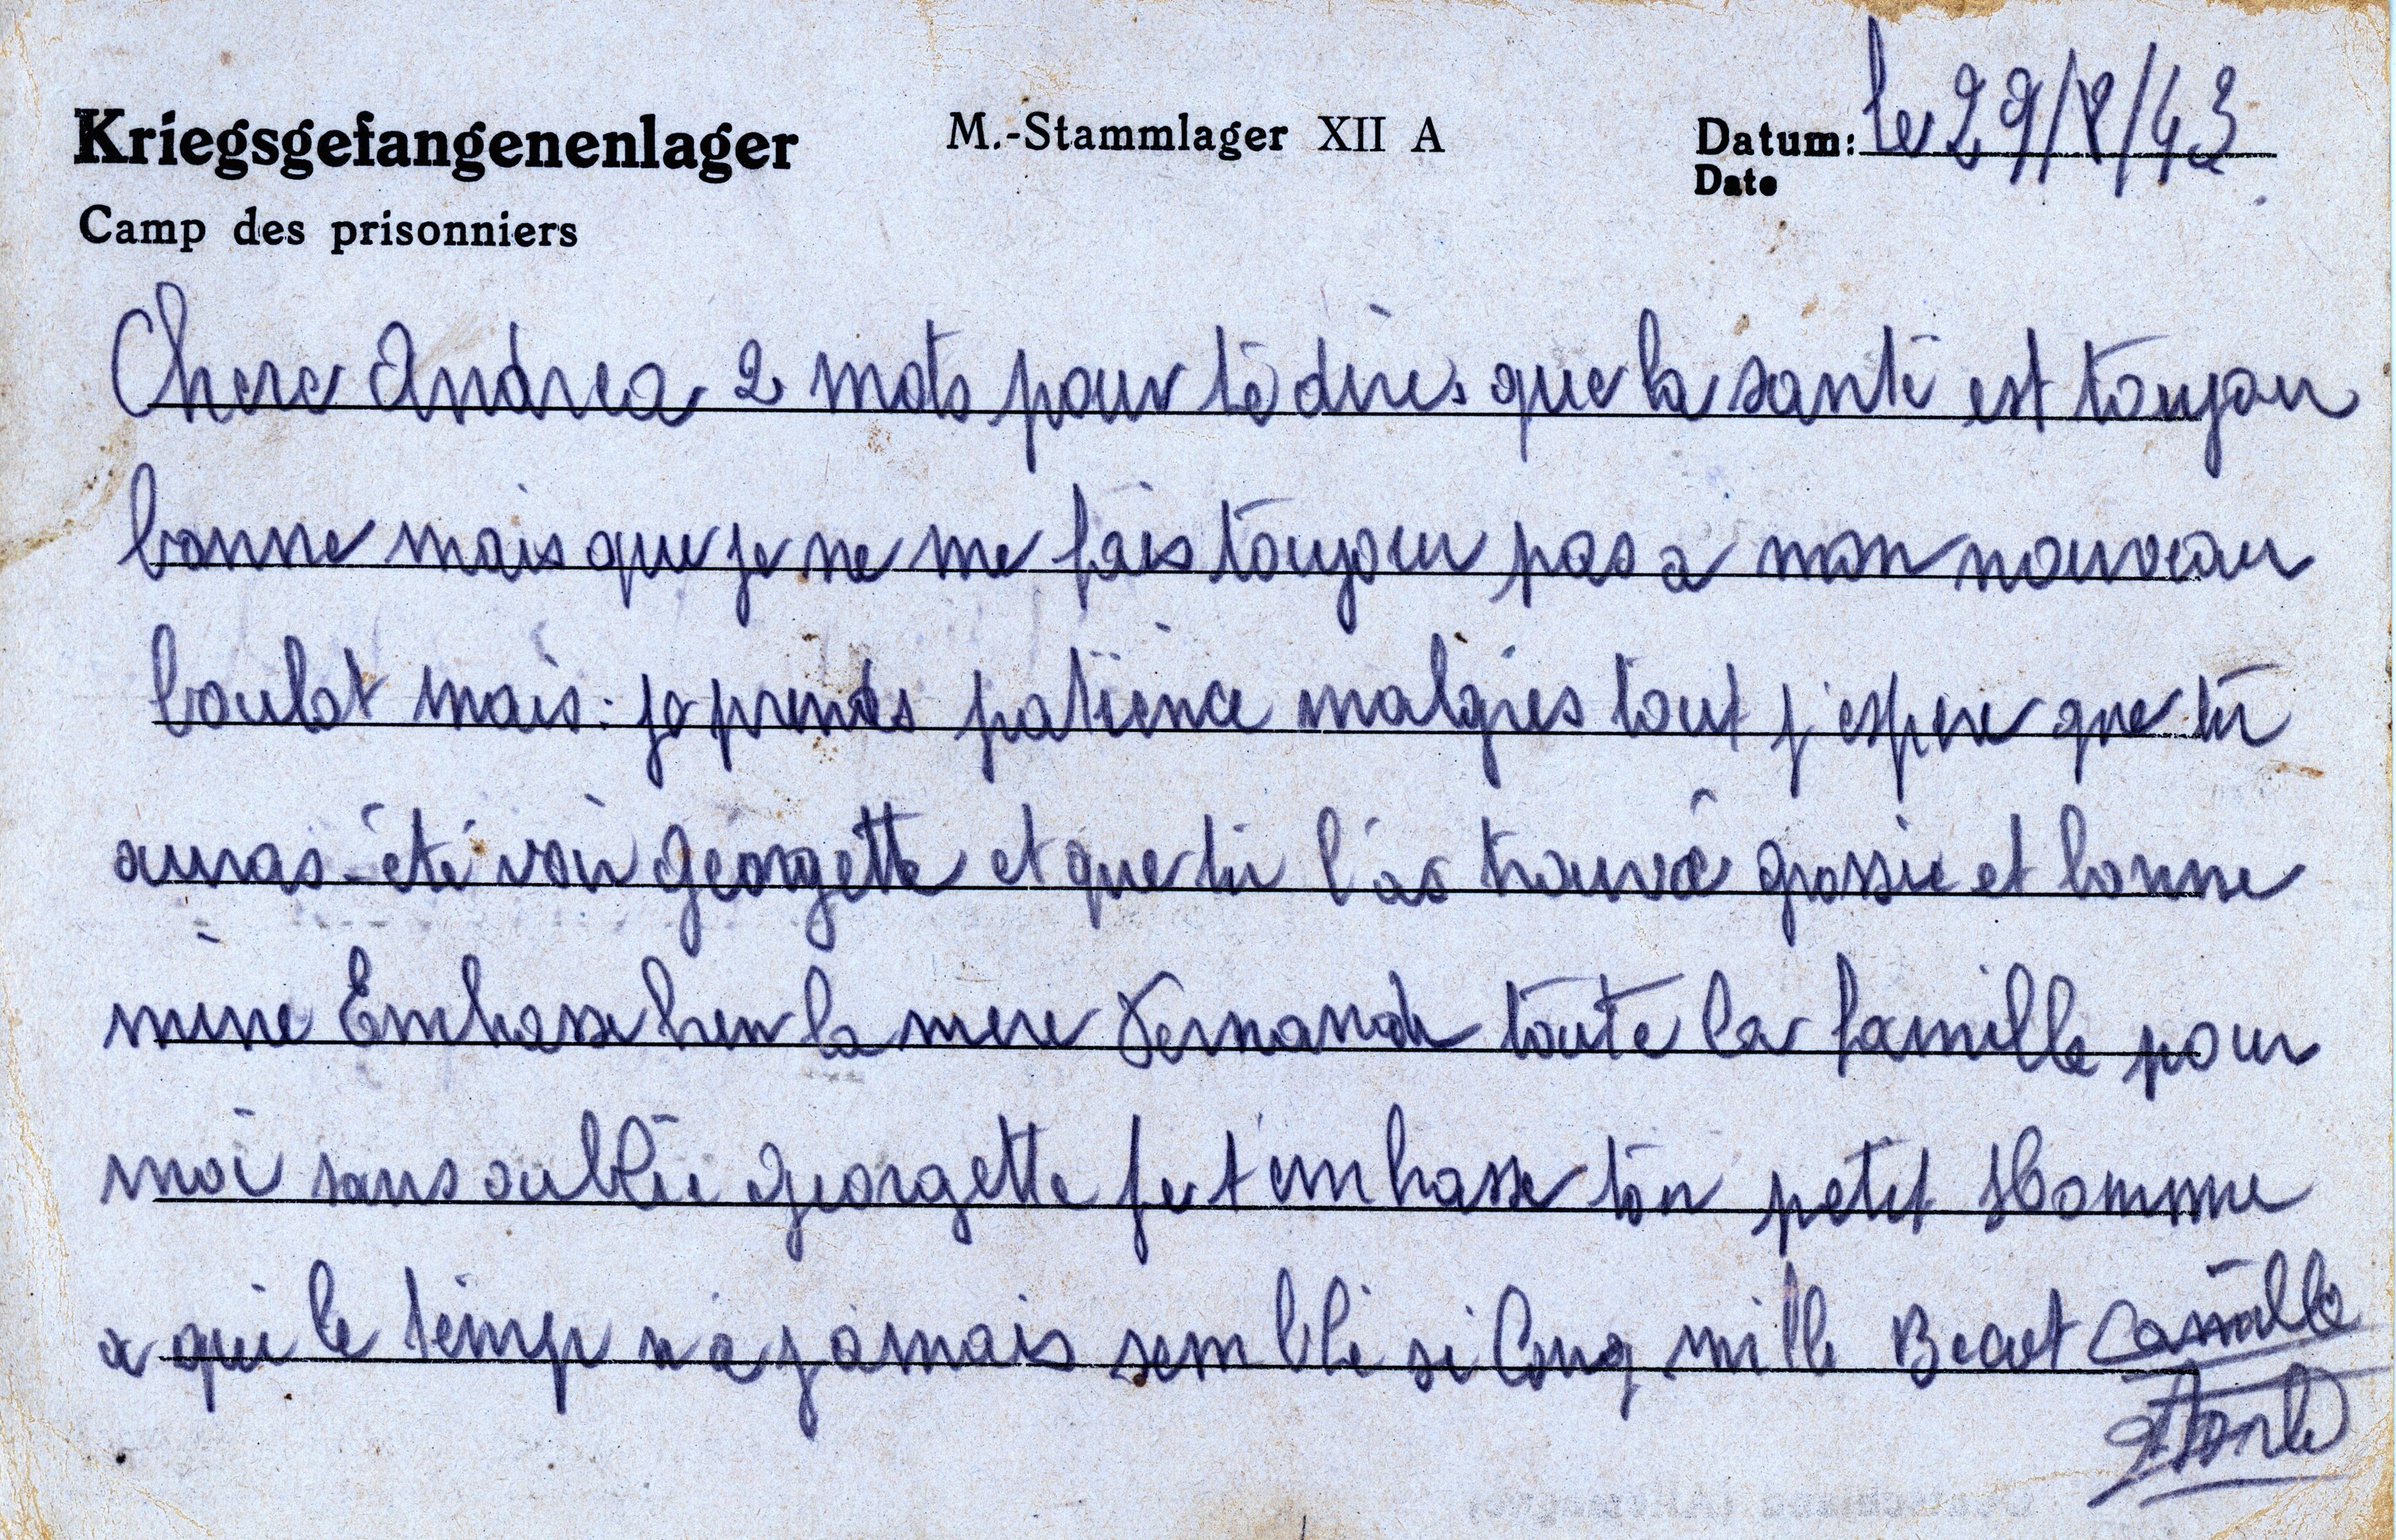 Kriegsgefangenenlager M.-Stammlager XII A Datum: le 29/8/43
Date
Camp des prisonniers
Chere Andrea 2 mots pour te dire que la santé est toujour
bonne mais que je ne me fais toujour pas a mon nouveau
boulot mais je prends patience malgres tout j'espere que tu
auras été voir Georgette et que tu l'as trouvé grossie et bonne
mine Embrasse bien la mere Fernande toute la famille pour
moi sans oublié Georgette je t'embrasse ton petit Homme
a qui le temp n'a jamais semblé si long mille Becot Camille